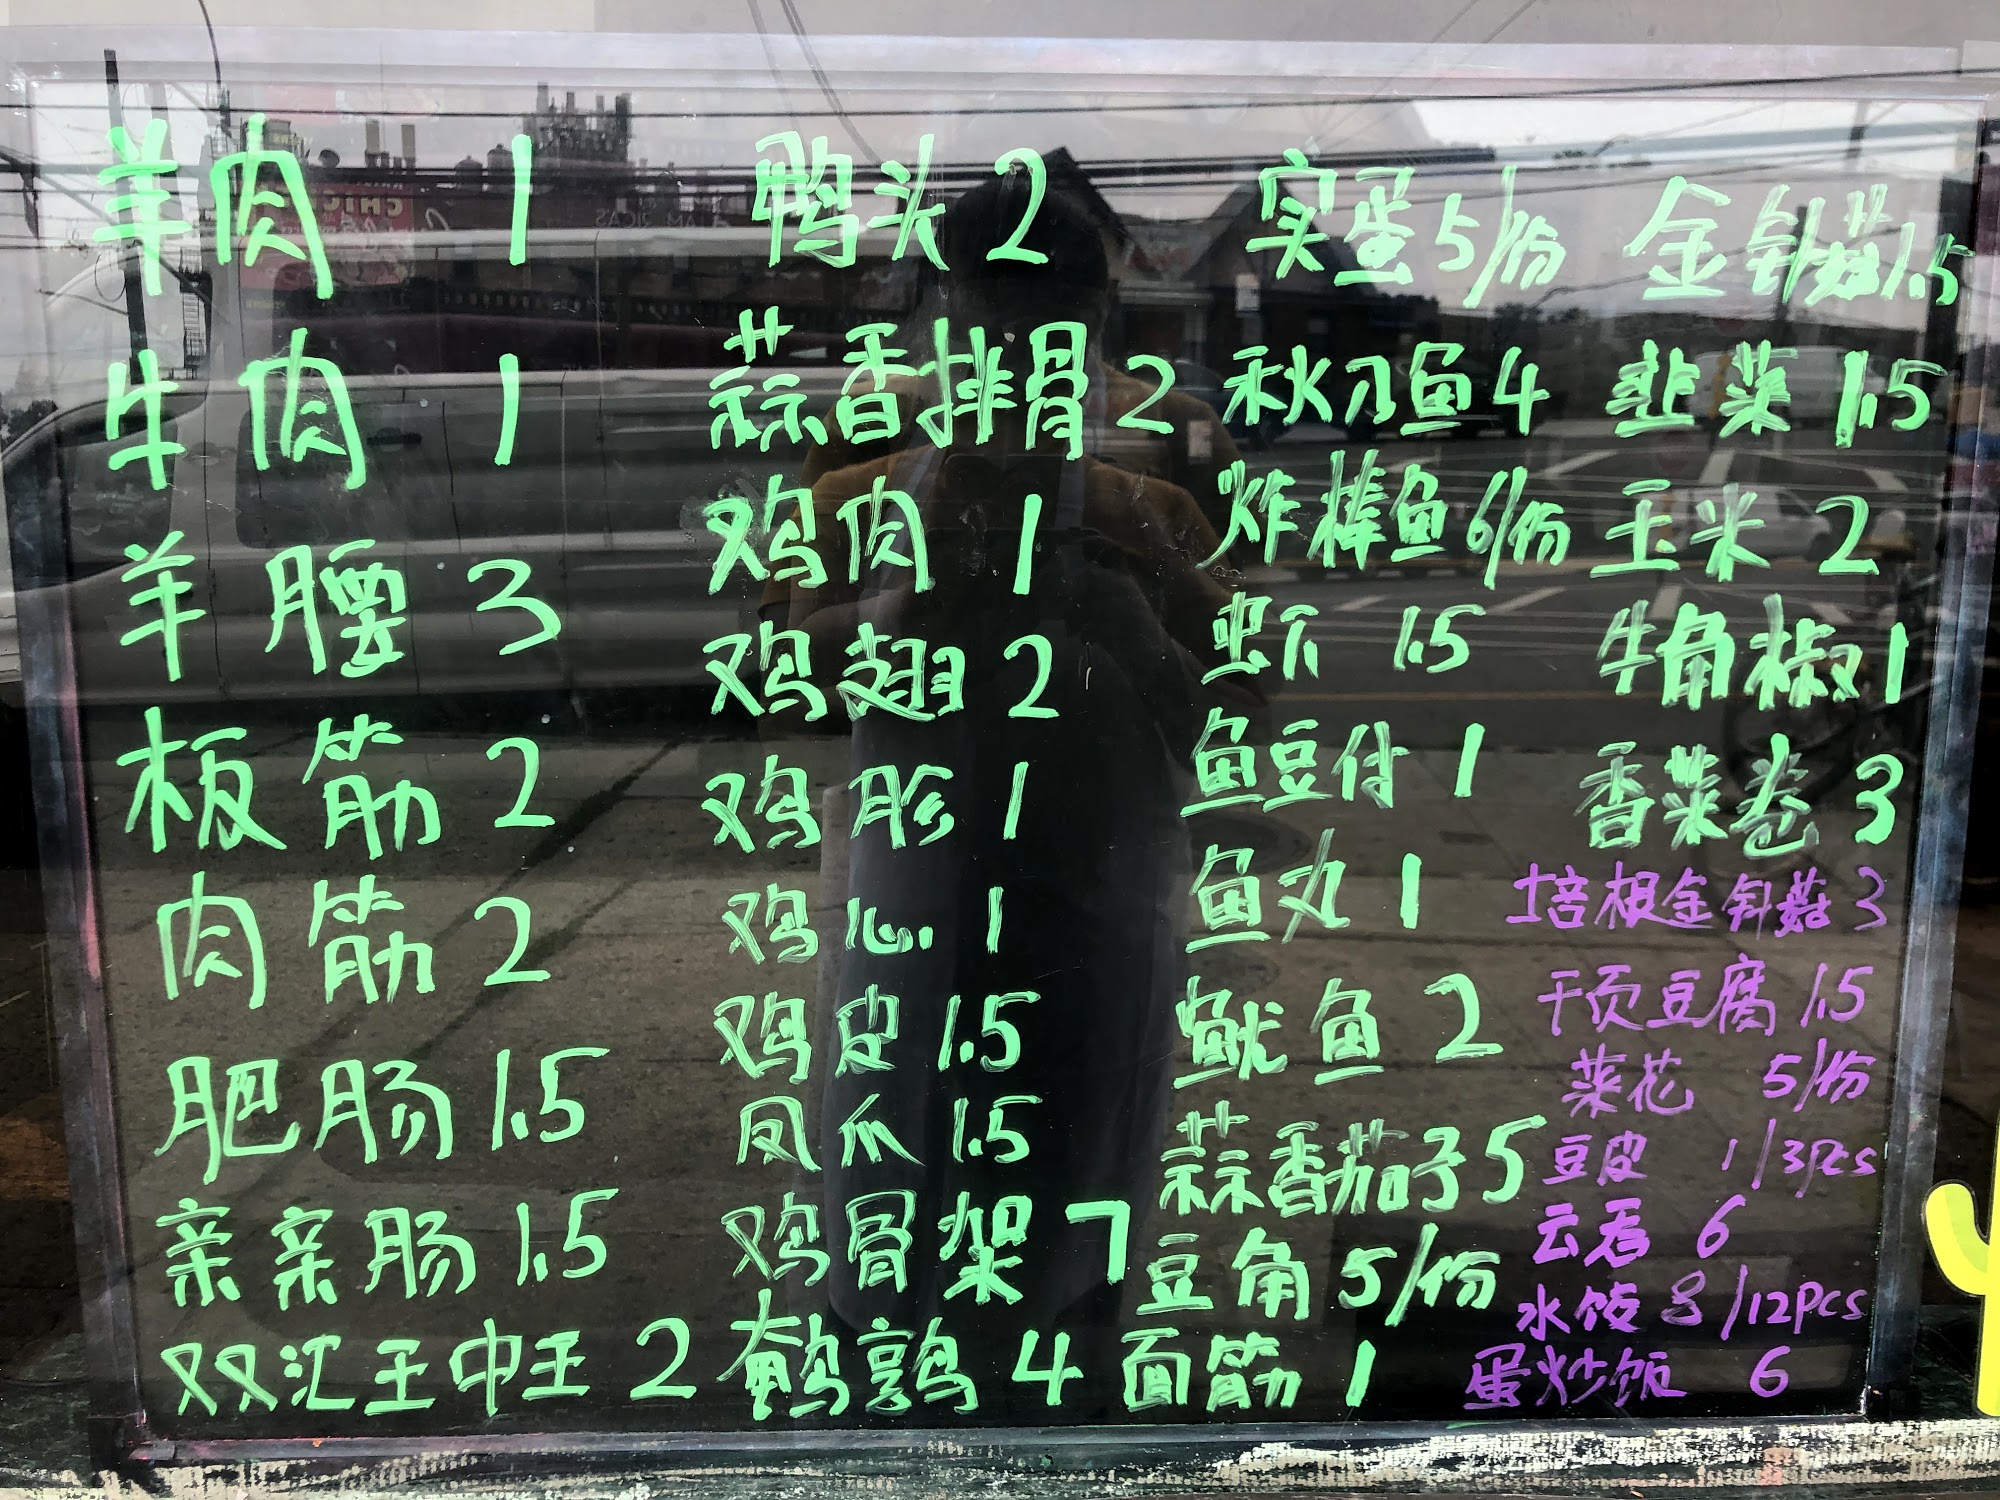 羊肉 1
牛肉 1
羊腰 3
板筋 2
肉筋 2
肥肠 1.5
亲亲肠 1.5
双汇王中王 2
鸭头 2
蒜香排骨 2
鸡肉 1
鸡翅 2
鸡胗 1
鸡心 1
鸡皮 1.5
凤爪 1.5
鸡骨架 7
鹌鹑 4
实蛋 5/份
秋刀鱼 4
炸棒鱼 6/份
虾 1.5
鱼豆付 1
鱼丸 1
鱿鱼 2
蒜香茄子 5
豆角 5/份
面筋 1
金针菇 1.5
韭菜 1.5
玉米 2
牛角椒 1
香菜卷 3
培根金针菇 3
干页豆腐 1.5
菜花 5/份
豆皮 1/3pcs
云吞 6
水饺 8/12pcs
蛋炒饭 6